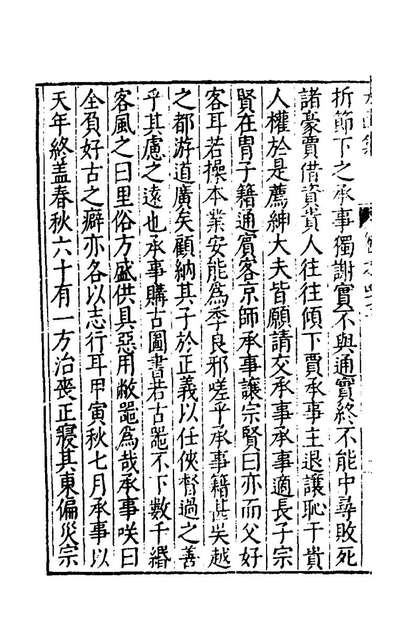 折節下之承事獨謝實不與通實終不能中尋敗死
諸豪賈借資貴人往往傾下賈承事主退讓恥干貴
人權於是薦紳大夫皆願請交承事承事適長子宗
賢在胄子籍通賓客京師承事讓宗賢曰亦而父好
客耳若操本業安能為季良邪嗟乎承事籍甚吳越
之都游道廣矣顧納其子於正義以任俠督過之善
乎其慮之遠也承事購古圖書若古器不下數千緡
客風之曰里俗方盛供具惡用敝器為哉承事咲曰
全負好古之癖亦各以志行耳甲寅秋七月承事以
天年終蓋春秋六十有一方治喪正寢其東偏災宗